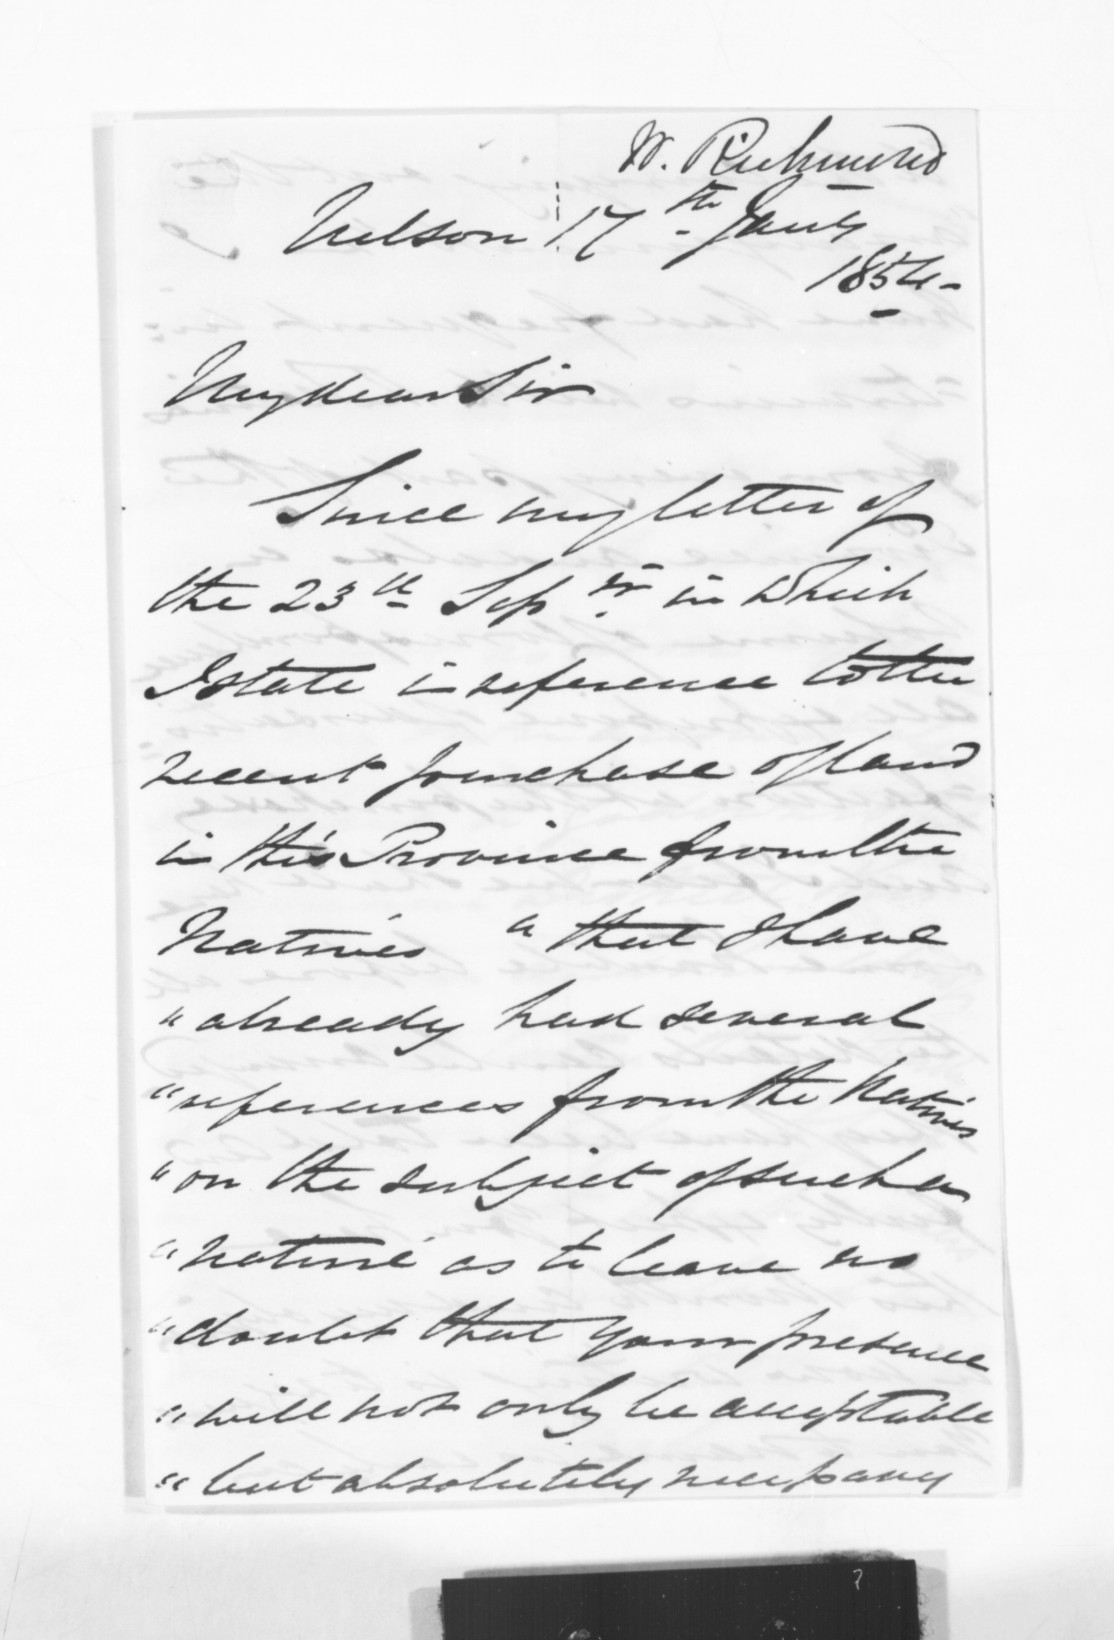 W. Richmond
Nelson 17th Jany
1854-
My dear Sir
Since my letter of
the 23th Sepr. in which
I state in reference to the
recent purchase of land
in this Province from the
Natives "that I have
"already had several
"references from the Natives
"on the subject of such a
"nature as to leave no
"doubt that your presence
"will not only be acceptable
"but absolutely necessary